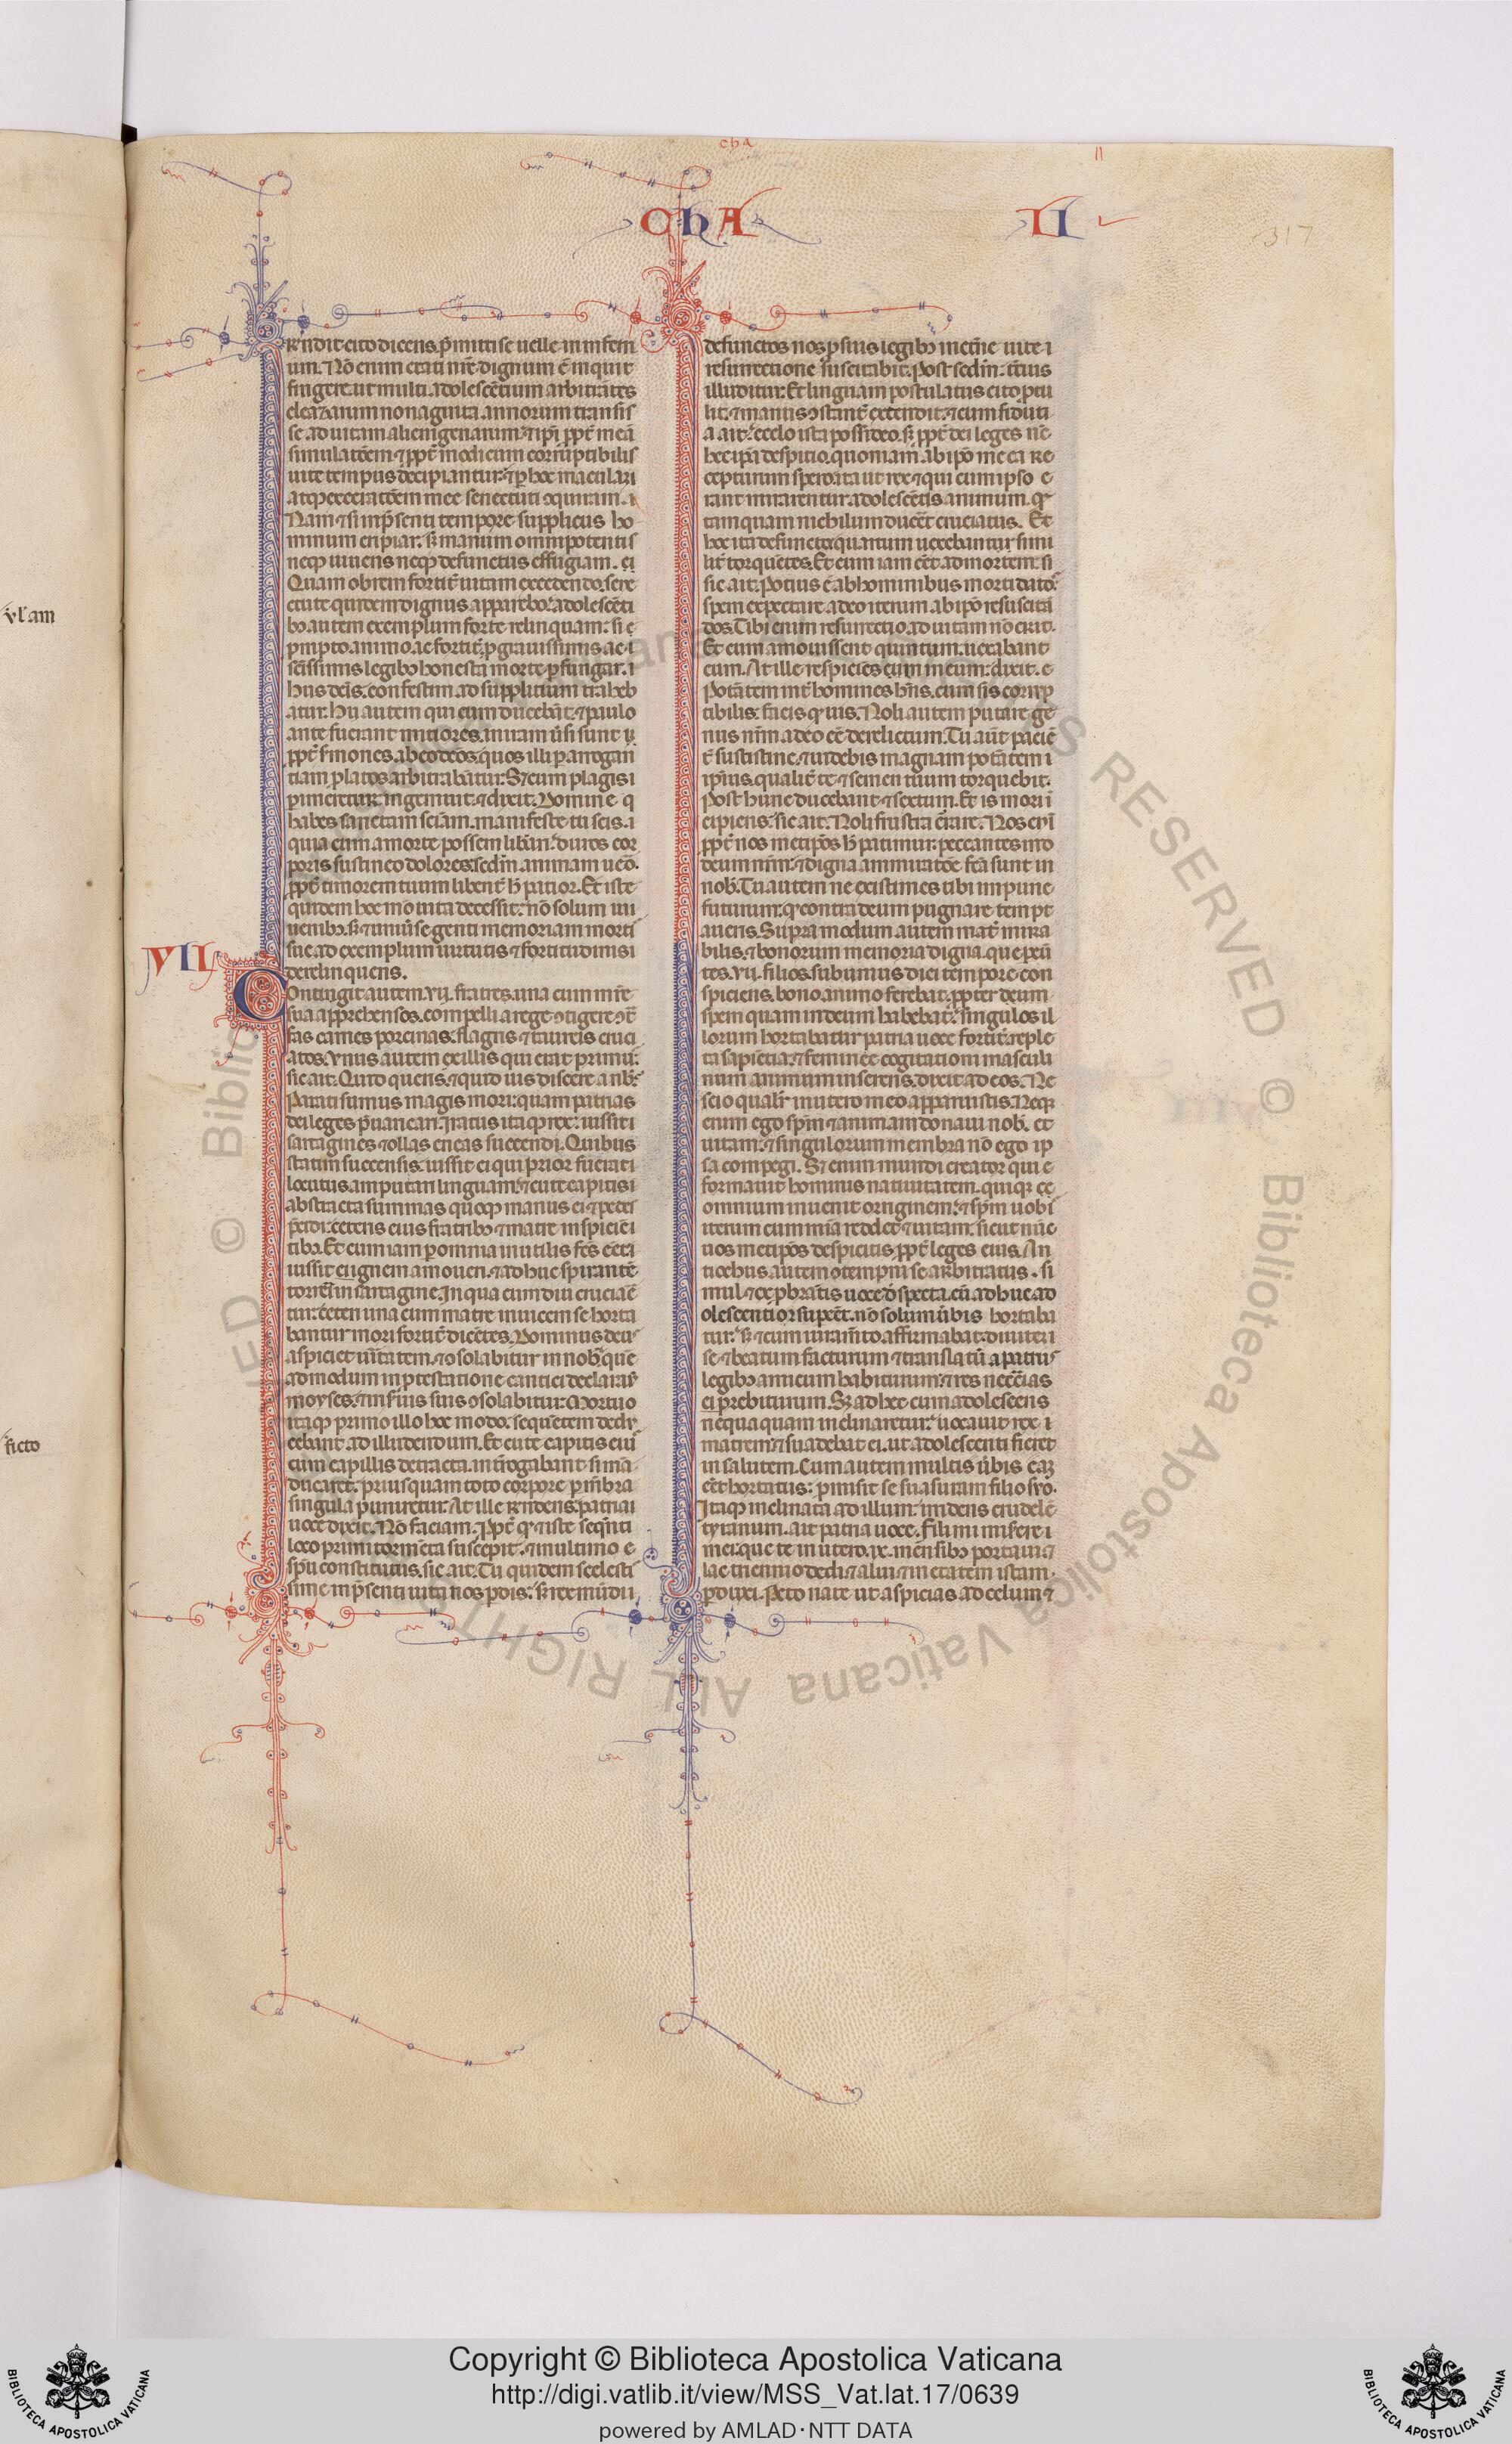 cha
II
CHA
II
317
ul'am
ficto
VII
rendit cito dicens. p̄mitti se uelle in infern
um. Nō enim etati nr̄e dignum ē inquit
fingere. ut multi adolescētium arbitrātes
eleazarum nonaginta annorum transis
se ad uitam alienigenarum. ⁊ ip̄i ppt̄ meā
simulatōem ⁊ ppt̄ modicum corruptibilis
uite tempus decipiantur. ⁊ p hoc maculam
atq execratōem mee senectuti ɔquiram.
Nam ⁊ si in p̄senti tempore suppliciis ho
minum eripiar. sꝫ manum omnipotentis
neq uiuens neq defunctus effugiam.
Quam obrem fortit̄ uitam excedendo. sene
ctute quidem dignus apparebo. adolescēti
bꝫ autem exemplum forte relinquam. si
prompto animo ac fortit̄ p grauissimis ac
sc̄issimis legibꝫ honesta morte pfungar.
hiis dc̄is. confestim ad supplitium traheb
atur. Hii autem qui eum ducebāt. ⁊ paulo
ante fuerant mitiores. in iram ūsi sunt
ppt̄ s̄mones ab eo dc̄os. quos illi p arrogan
tiam platos arbitrabātur. Sꝫ cum plagis
pimeretur. ingemuit. ⁊ dixit. Domine q
habes sanctam sciam. manifeste tu scis.
quia cum a morte possem lib̄ari. duros cor
poris sustineo dolores. sed̄m animam uēo.
ppt̄ timorem tuum libent̄ h̄ patior. Et iste
quidem hoc mō uita decessit. nō solum iu
uenibꝫ. sꝫ ⁊ uniūse genti memoriam morti
sue ad exemplum uirtutis ⁊ fortitudinis
derelinquens.
Contingit autem VII. fratres una cum mr̄e
sua apprehensos. compelli a rege ɔtigere ɔt̄
fas carnes porcinas. flagris ⁊ taureis cruci
atos. Vnus autem ex illis qui erat primus
sic ait. Quid queris. ⁊ quid uis discere a nob̄.
Parati sumus magis mori. quam patrias
dei leges p̄uaricari. Iratus itaq rex. iussit
sartagines ⁊ ollas eneas succendi. Quibus
statim succensis. iussit ei qui prior fuerat
locutus. amputari linguam. ⁊ cute capitis
abstracta summas quoq manus ei ⁊ pedes
p̄cidi. ceteris eius fratribꝫ ⁊ matre inspiciē
tibꝫ. Et cum iam p omnia inutilis fc̄s eēt
iussit ei ignem amoueri. ⁊ ad huc spirantē
torreri in sartagine. In qua cum diu cruciaē
tur. ceteri una cum matre inuicem se horta
bantur mori fortit̄ dicētes. Dominus deus
aspiciet uitatem. ⁊ ɔsolabitur in nob̄. que
admodum in ptestatione cantici declarau
moyses. ⁊ in s̄uis suis ɔsolabitur. Mortuo
itaq primo illo hoc modo. sequētem dedu
cebant ad illudendum. Et cute capitis eius
cum capillis detracta. int̄rogabant si mā
ducaret. prius quam toto corpore p mēbra
singula puniretur. At ille rn̄dens patria
uoce dixit. Nō faciam. Ppt̄ q ⁊ iste sequenti
loco primi tormēta suscepit. ⁊ in ultimo
sp̄u constitutus. sic ait. Tu quidem scelesti
sime in p̄senti uita nos pdis. sꝫ rex mūdi
defunctos nos p suis legibꝫ in et̄ne uite
resurrectione suscitabit. Post sed̄m. t̄tius
illuditur. Et linguam postulatus cito ptu
lit. ⁊ manus ɔstant̄ extendit. ⁊ cum fiduti
a ait. e celo ista possideo. sꝫ ppt̄ dei leges nc̄
hec ip̄a despitio. quoniam ab ip̄o me ea re
cepturum spero. ita ut rex ⁊ qui cum ipso e
rant mirarentur adolescētis animum. q
tamquam nichilum ducēt cruciatus. Et
hoc ita defuncto. quartum uexabantur simi
lit̄ torquētes. Et cum iam eēt ad mortem.
sic ait. Potius ē ab hominibus morti datos
spem expectare a deo iterum ab ipō resuscitā
dos. Tibi enim resurrectio ad uitam nō erit.
Et cum amouissent quintum. uexabant
eum. At ille respiciēs eum in eum. dixit.
Potātem int̄ homines hn̄s. cum sis corrup
tibilis. facis q uis. Noli autem putare ge
nus nr̄m a deo eē derelictum. Tu aut̄ paciē
t̄ sustistine. ⁊ uidebis magnam potātem
ip̄ius. qualit̄ te ⁊ semen tuum torquebit.
Post hunc ducebant ⁊ sextum. Et is mori
cipiens. sic ait. Noli frustra ērare. Nos eni
ppt̄ nos metip̄os h̄ patimur. peccantes in
deum nr̄m. ⁊ digna ammiratōe fc̄a sunt in
nob̄. Tu autem ne existimes tibi impune
futurum. q contra deum pugnare tempt
aueris. Supra modum autem mat̄ mira
bilis. ⁊ bonorum memoria digna. que peū
tes. VII. filios sub unius diei tempore con
spiciens. bono animo ferebat. ppter deum
spem quam in deum habebat. singulos il
lorum hortabatur patria uoce fortit̄. reple
ta sapiētia. ⁊ feminee cogitationi masculi
num animum inserens. dixit ad eos. Ne
scio qualit̄ in utero meo apparuistis. Neq
enim ego sp̄m ⁊ animam donaui nob̄. et
uitam. ⁊ singulorum membra nō ego ip
sa compegi. Sꝫ enim mundi creator qui
formauit hominis natiuitatem. quiq
omnium inuenit originem. ⁊ sp̄m uobis
iterum cum mīa reddet ⁊ uitam. sicut nūc
uos metip̄os despicitis ppt̄ leges eius. An
tiochus autem ɔtempni se arbitratus.
mul ⁊ exprobratis uoce despecta. cū adhuc ad
olescentior supeēt. nō solum ūbis hortaba
tur. sꝫ ⁊ cum iuram̄to affirmabat. diuitem
se ⁊ beatum facturum. ⁊ translatū a patriis
legibꝫ amicum habiturum. ⁊ res necc̄ias
ei prebiturum. Sꝫ ad hec cum adolescens
nequaquam inclinaretur. uocauit rex
matrem. ⁊ suadebat ei. ut adolescenti fieret
in salutem. Cum autem multis ūbis eam
eēt hortatus. pmisit se suasuram filio suo.
Itaq inclinata ad illum. irridens crudelē
tyrannum. ait patria uoce. Fili mi miserere
mei. que te in utero. ix. mēsibꝫ portaui. ⁊
lac triennio dedi ⁊ alui. ⁊ in etatem istam
pduxi. Peto nate ut aspicias ad celum ⁊
© Biblioteca Apostolica Vaticana ALL RIGHTS RESERVED
Copyright © Biblioteca Apostolica Vaticana
http://digi.vatlib.it/view/MSS_Vat.lat.17/0639
powered by AMLAD·NTT DATA
BIBLIOTECA APOSTOLICA VATICANA
BIBLIOTECA APOSTOLICA VATICANA